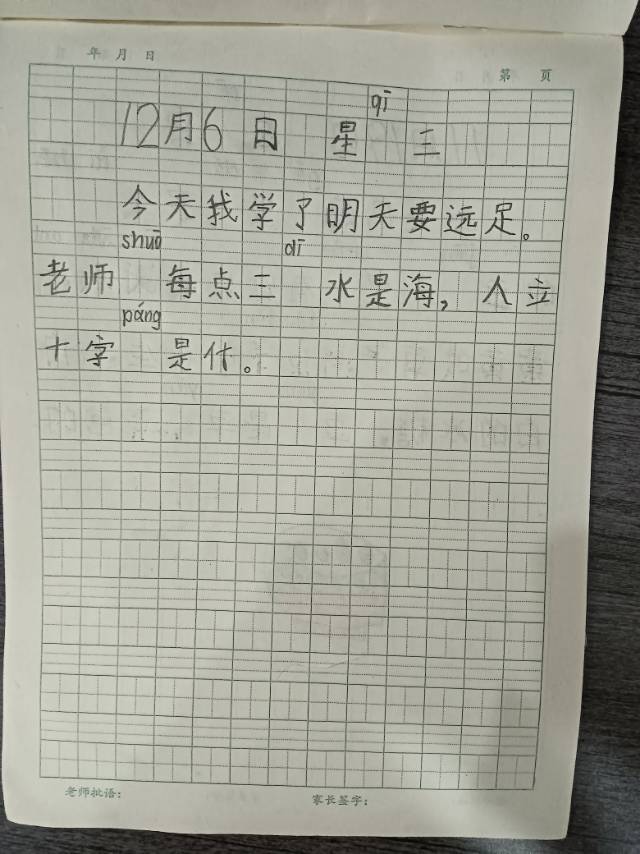 年 月 日
第 页
qī
12月6日 星 三
今天我学了明天要远足。
shuō dī
老师 每点三 水是海,人立
páng
十字 是什。
老师批语:
家长签字: